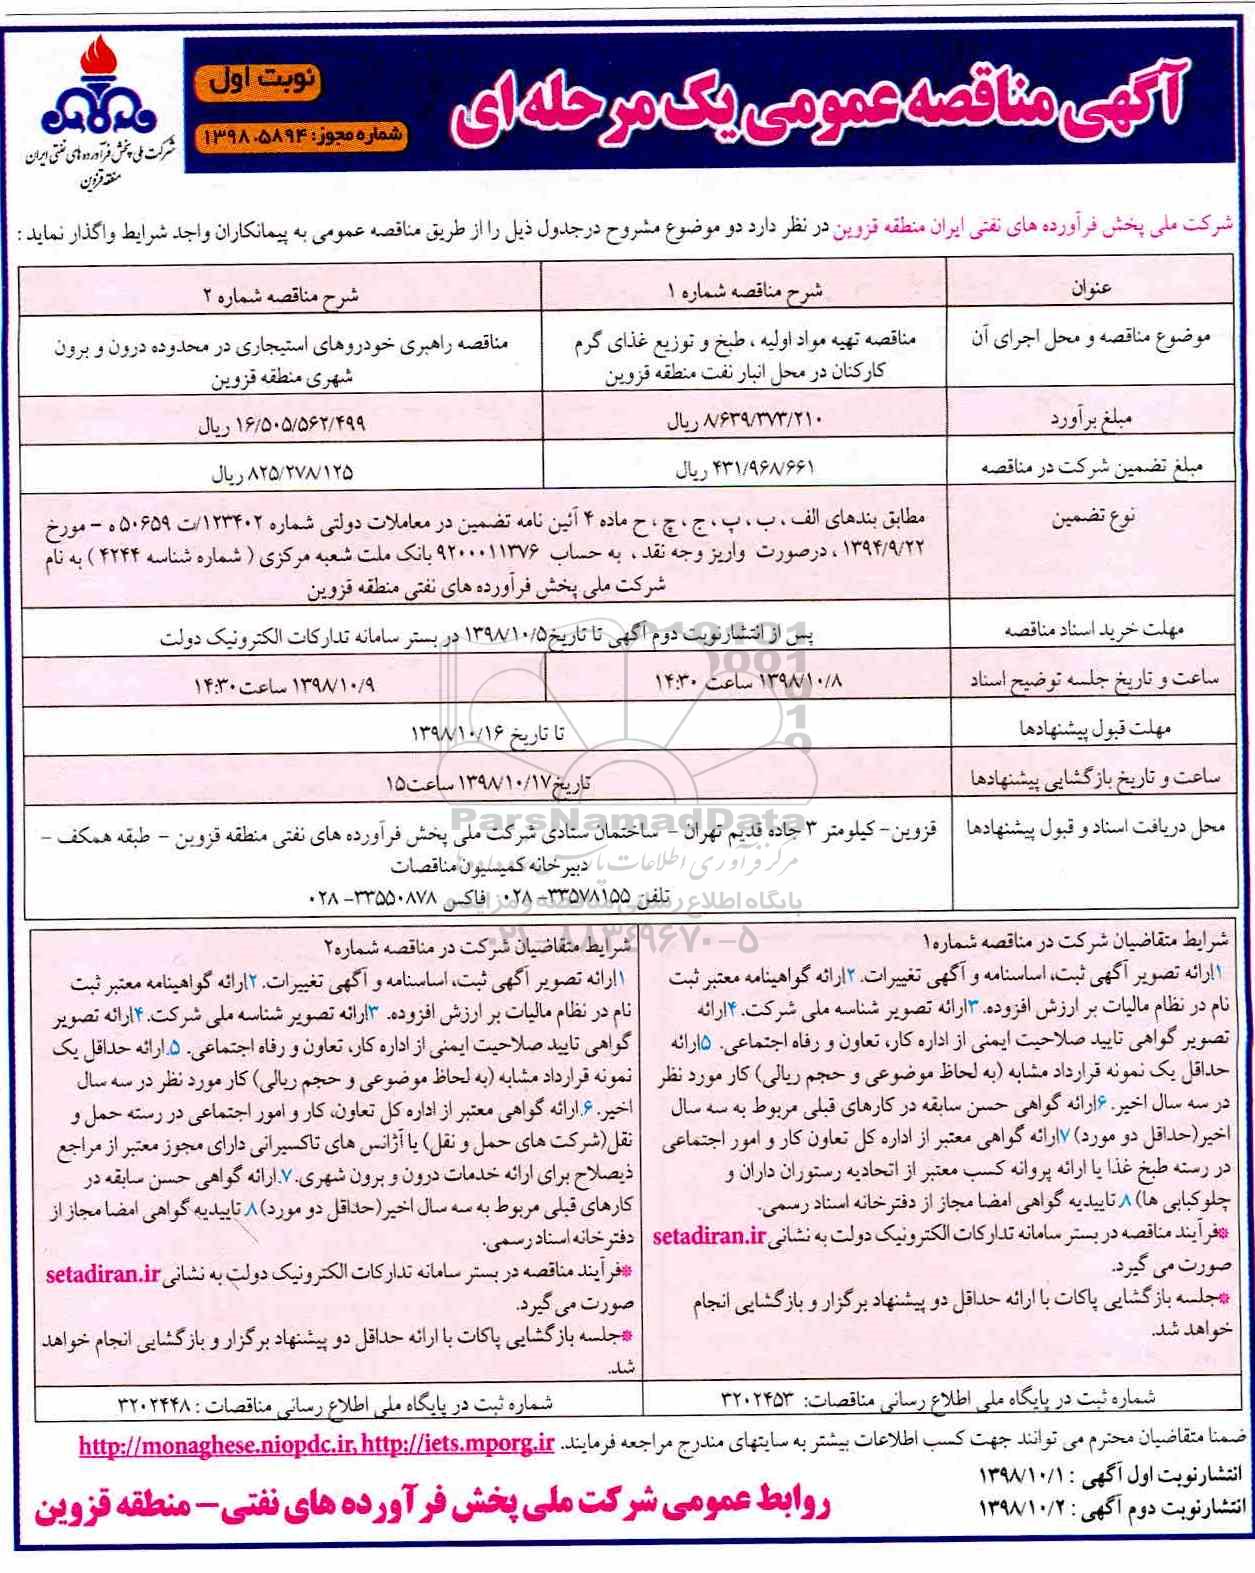 آگهی مناقصه عمومی یک مرحله ای
نوبت اول
شماره مجوز: ۱۳۹۸.۵۸۹۴
شرکت ملی پخش فرآورده های نفتی ایران
منطقه قزوین
شرکت ملی پخش فرآورده های نفتی ایران منطقه قزوین در نظر دارد دو موضوع مشروح درجدول ذیل را از طریق مناقصه عمومی به پیمانکاران واجد شرایط واگذار نماید :
عنوان
شرح مناقصه شماره ۱
شرح مناقصه شماره ۲
موضوع مناقصه و محل اجرای آن
مناقصه تهیه مواد اولیه ، طبخ و توزیع غذای گرم
کارکنان در محل انبار نفت منطقه قزوین
مناقصه راهبری خودروهای استیجاری در محدوده درون و برون
شهری منطقه قزوین
مبلغ برآورد
۸/۶۳۹/۳۷۳/۲۱۰ ریال
۱۶/۵۰۵/۵۶۲/۴۹۹ ریال
مبلغ تضمین شرکت در مناقصه
۴۳۱/۹۶۸/۶۶۱ ریال
۸۲۵/۲۷۸/۱۲۵ ریال
نوع تضمین
مطابق بندهای الف ، ب ، پ ، ج ، چ ، ح ماده ۴ آئین نامه تضمین در معاملات دولتی شماره ۱۲۳۴۰۲/ت ۵۰۶۵۹ ه - مورخ
۱۳۹۴/۹/۲۲ ، درصورت واریز وجه نقد ، به حساب ۹۲۰۰۰۱۱۳۷۶ بانک ملت شعبه مرکزی ( شماره شناسه ۴۲۴۴ ) به نام
شرکت ملی پخش فرآورده های نفتی منطقه قزوین
مهلت خرید اسناد مناقصه
پس از انتشارنوبت دوم آگهی تا تاریخ۱۳۹۸/۱۰/۵ در بستر سامانه تدارکات الکترونیک دولت
ساعت و تاریخ جلسه توضیح اسناد
۱۳۹۸/۱۰/۸ ساعت ۱۴:۳۰
۱۳۹۸/۱۰/۹ ساعت۱۴:۳۰
مهلت قبول پیشنهادها
تا تاریخ ۱۳۹۸/۱۰/۱۶
ساعت و تاریخ بازگشایی پیشنهادها
تاریخ۱۳۹۸/۱۰/۱۷ ساعت۱۵
ParsNamadData
محل دریافت اسناد و قبول پیشنهادها
قزوین- کیلومتر ۳ جاده قدیم تهران - ساختمان ستادی شرکت ملی پخش فرآورده های نفتی منطقه قزوین - طبقه همکف -
دبیرخانه کمیسیون مناقصات
تلفن ۳۳۵۷۸۱۵۵- ۰۲۸ فاکس ۳۳۵۵۰۸۷۸- ۰۲۸
پایگاه اطلاع رسانی مناقصه و مزایده
۰۲۱-۸۸۳۴۹۶۷۰-۵
شرایط متقاضیان شرکت در مناقصه شماره۱
۱.ارائه تصویر آگهی ثبت، اساسنامه و آگهی تغییرات. ۲.ارائه گواهینامه معتبر ثبت
نام در نظام مالیات بر ارزش افزوده. ۳.ارائه تصویر شناسه ملی شرکت. ۴.ارائه
تصویر گواهی تایید صلاحیت ایمنی از اداره کار، تعاون و رفاه اجتماعی. ۵.ارائه
حداقل یک نمونه قرارداد مشابه (به لحاظ موضوعی و حجم ریالی) کار مورد نظر
در سه سال اخیر. ۶.ارائه گواهی حسن سابقه در کارهای قبلی مربوط به سه سال
اخیر(حداقل دو مورد) ۷.ارائه گواهی معتبر از اداره کل تعاون کار و امور اجتماعی
در رسته طبخ غذا یا ارائه پروانه کسب معتبر از اتحادیه رستوران داران و
چلوکبابی ها) ۸.تاییدیه گواهی امضا مجاز از دفترخانه اسناد رسمی.
*فرآیند مناقصه در بستر سامانه تدارکات الکترونیک دولت به نشانی setadiran.ir
صورت می گیرد.
*جلسه بازگشایی پاکات با ارائه حداقل دو پیشنهاد برگزار و بازگشایی انجام
خواهد شد.
شماره ثبت در پایگاه ملی اطلاع رسانی مناقصات: ۳۲۰۲۴۵۳
شرایط متقاضیان شرکت در مناقصه شماره۲
۱.ارائه تصویر آگهی ثبت، اساسنامه و آگهی تغییرات. ۲.ارائه گواهینامه معتبر ثبت
نام در نظام مالیات بر ارزش افزوده. ۳.ارائه تصویر شناسه ملی شرکت. ۴.ارائه تصویر
گواهی تایید صلاحیت ایمنی از اداره کار، تعاون و رفاه اجتماعی. ۵.ارائه حداقل یک
نمونه قرارداد مشابه (به لحاظ موضوعی و حجم ریالی) کار مورد نظر در سه سال
اخیر. ۶.ارائه گواهی معتبر از اداره کل تعاون، کار و امور اجتماعی در رسته حمل و
نقل(شرکت های حمل و نقل) یا آژانس های تاکسیرانی دارای مجوز معتبر از مراجع
ذیصلاح برای ارائه خدمات درون و برون شهری. ۷.ارائه گواهی حسن سابقه در
کارهای قبلی مربوط به سه سال اخیر(حداقل دو مورد) ۸.تاییدیه گواهی امضا مجاز از
دفترخانه اسناد رسمی.
*فرآیند مناقصه در بستر سامانه تدارکات الکترونیک دولت به نشانی setadiran.ir
صورت می گیرد.
*جلسه بازگشایی پاکات با ارائه حداقل دو پیشنهاد برگزار و بازگشایی انجام خواهد
شد.
شماره ثبت در پایگاه ملی اطلاع رسانی مناقصات : ۳۲۰۲۴۴۸
ضمنا متقاضیان محترم می توانند جهت کسب اطلاعات بیشتر به سایتهای مندرج مراجعه فرمایند. http://monaghese.niopdc.ir, http://iets.mporg.ir
انتشارنوبت اول آگهی : ۱۳۹۸/۱۰/۱
انتشارنوبت دوم آگهی : ۱۳۹۸/۱۰/۲
روابط عمومی شرکت ملی پخش فرآورده های نفتی- منطقه قزوین